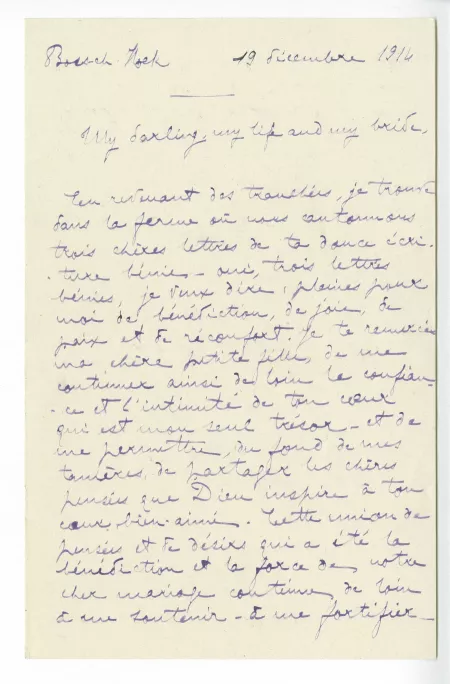 Boesch-Hoek 19 décembre 1914
My darling, my life and my bride,
En revenant des tranchées, je trouve
dans la ferme où nous cantonnons
trois chères lettres de ta douce écri-
-ture bénie, - oui, trois lettres
bénies, je veux dire, pleines pour
moi de bénédiction, de joie, de
paix et de réconfort. Je te remercie
ma chère petite fille, de me
continuer ainsi de loin la confian-
-ce et l'intimité de ton cœur
qui est mon seul trésor - et de
me permettre, du fond de mes
, de partager les chères
pensées que Dieu inspire à ton
cœur bien-aimé. Cette union de
pensées et de désirs qui a été la
bénédiction et la force de notre
cher mariage continue de loin
à me soutenir - à me fortifier -